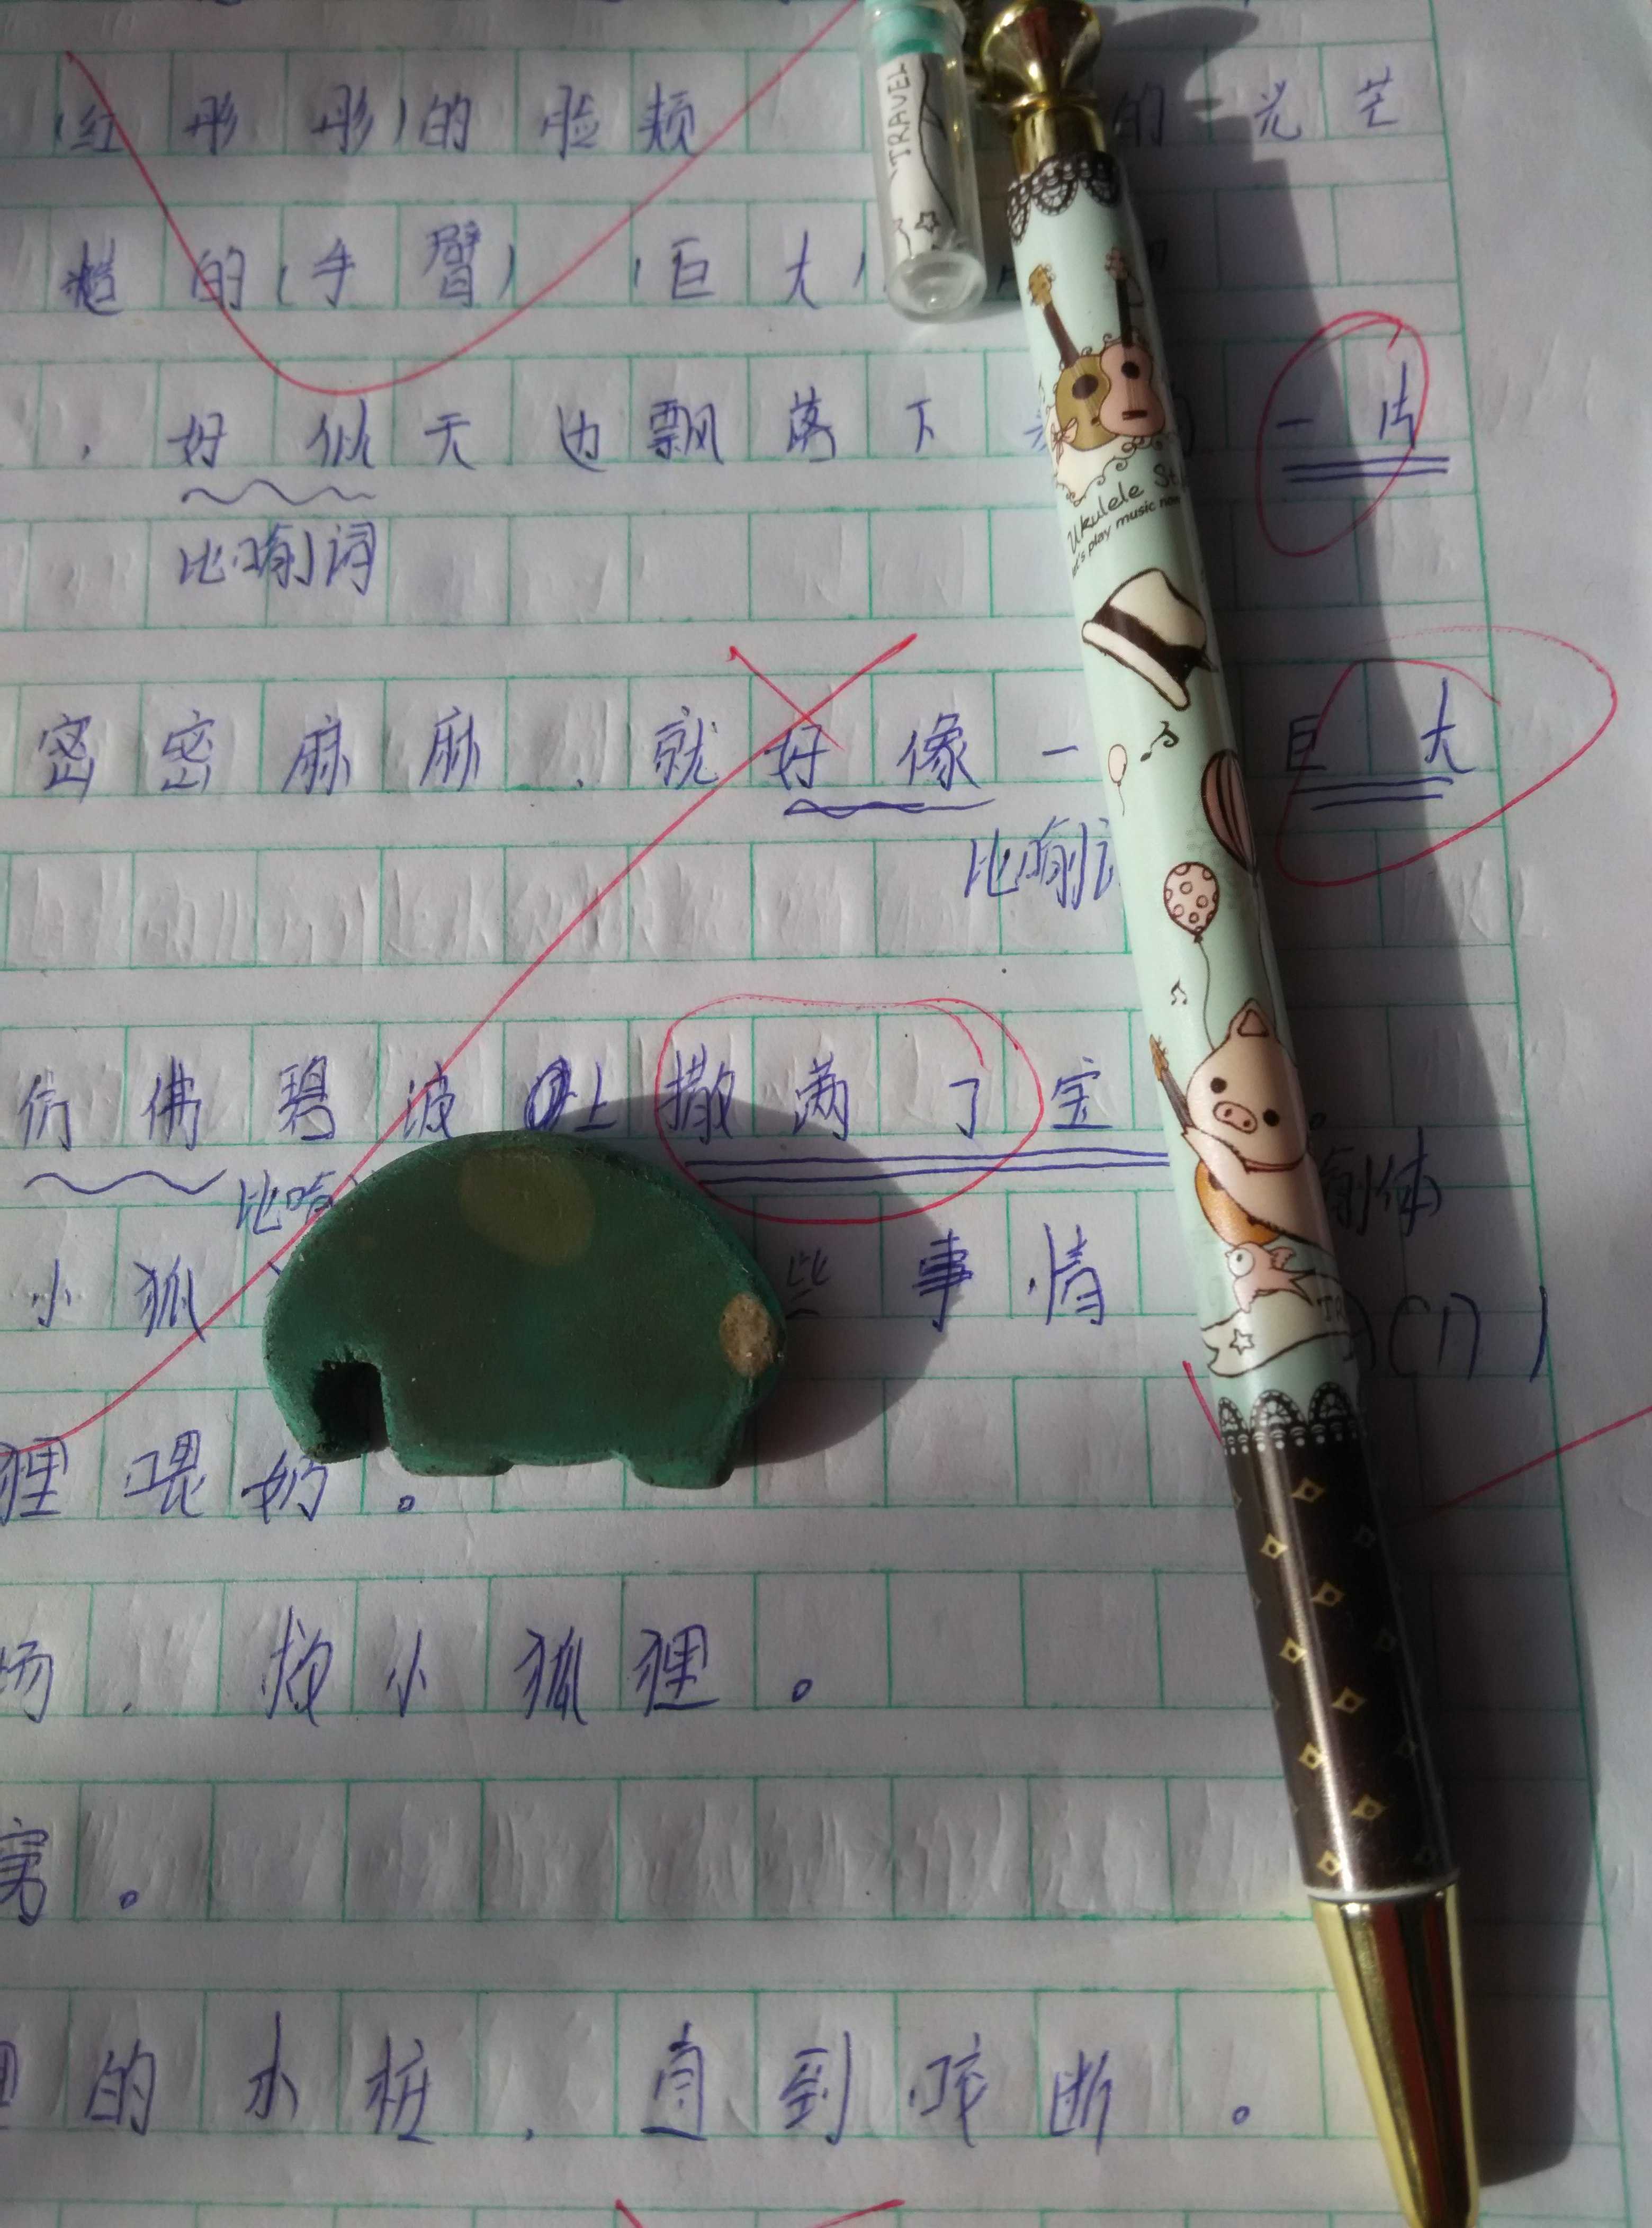 (红彤彤)的脸颊
的光芒
糙的(手臂) (巨大)
TRAVEL
，好似天边飘落下 一片
比喻词
Ukulele St
let's play music now
密密麻麻，就好像一 巨大
比喻
仿佛碧波上撒满了宝 。
比喻 喻体
小狐 些事情
狸喂奶。
场，救小狐狸。
窝。
的木桩，直到咬断。